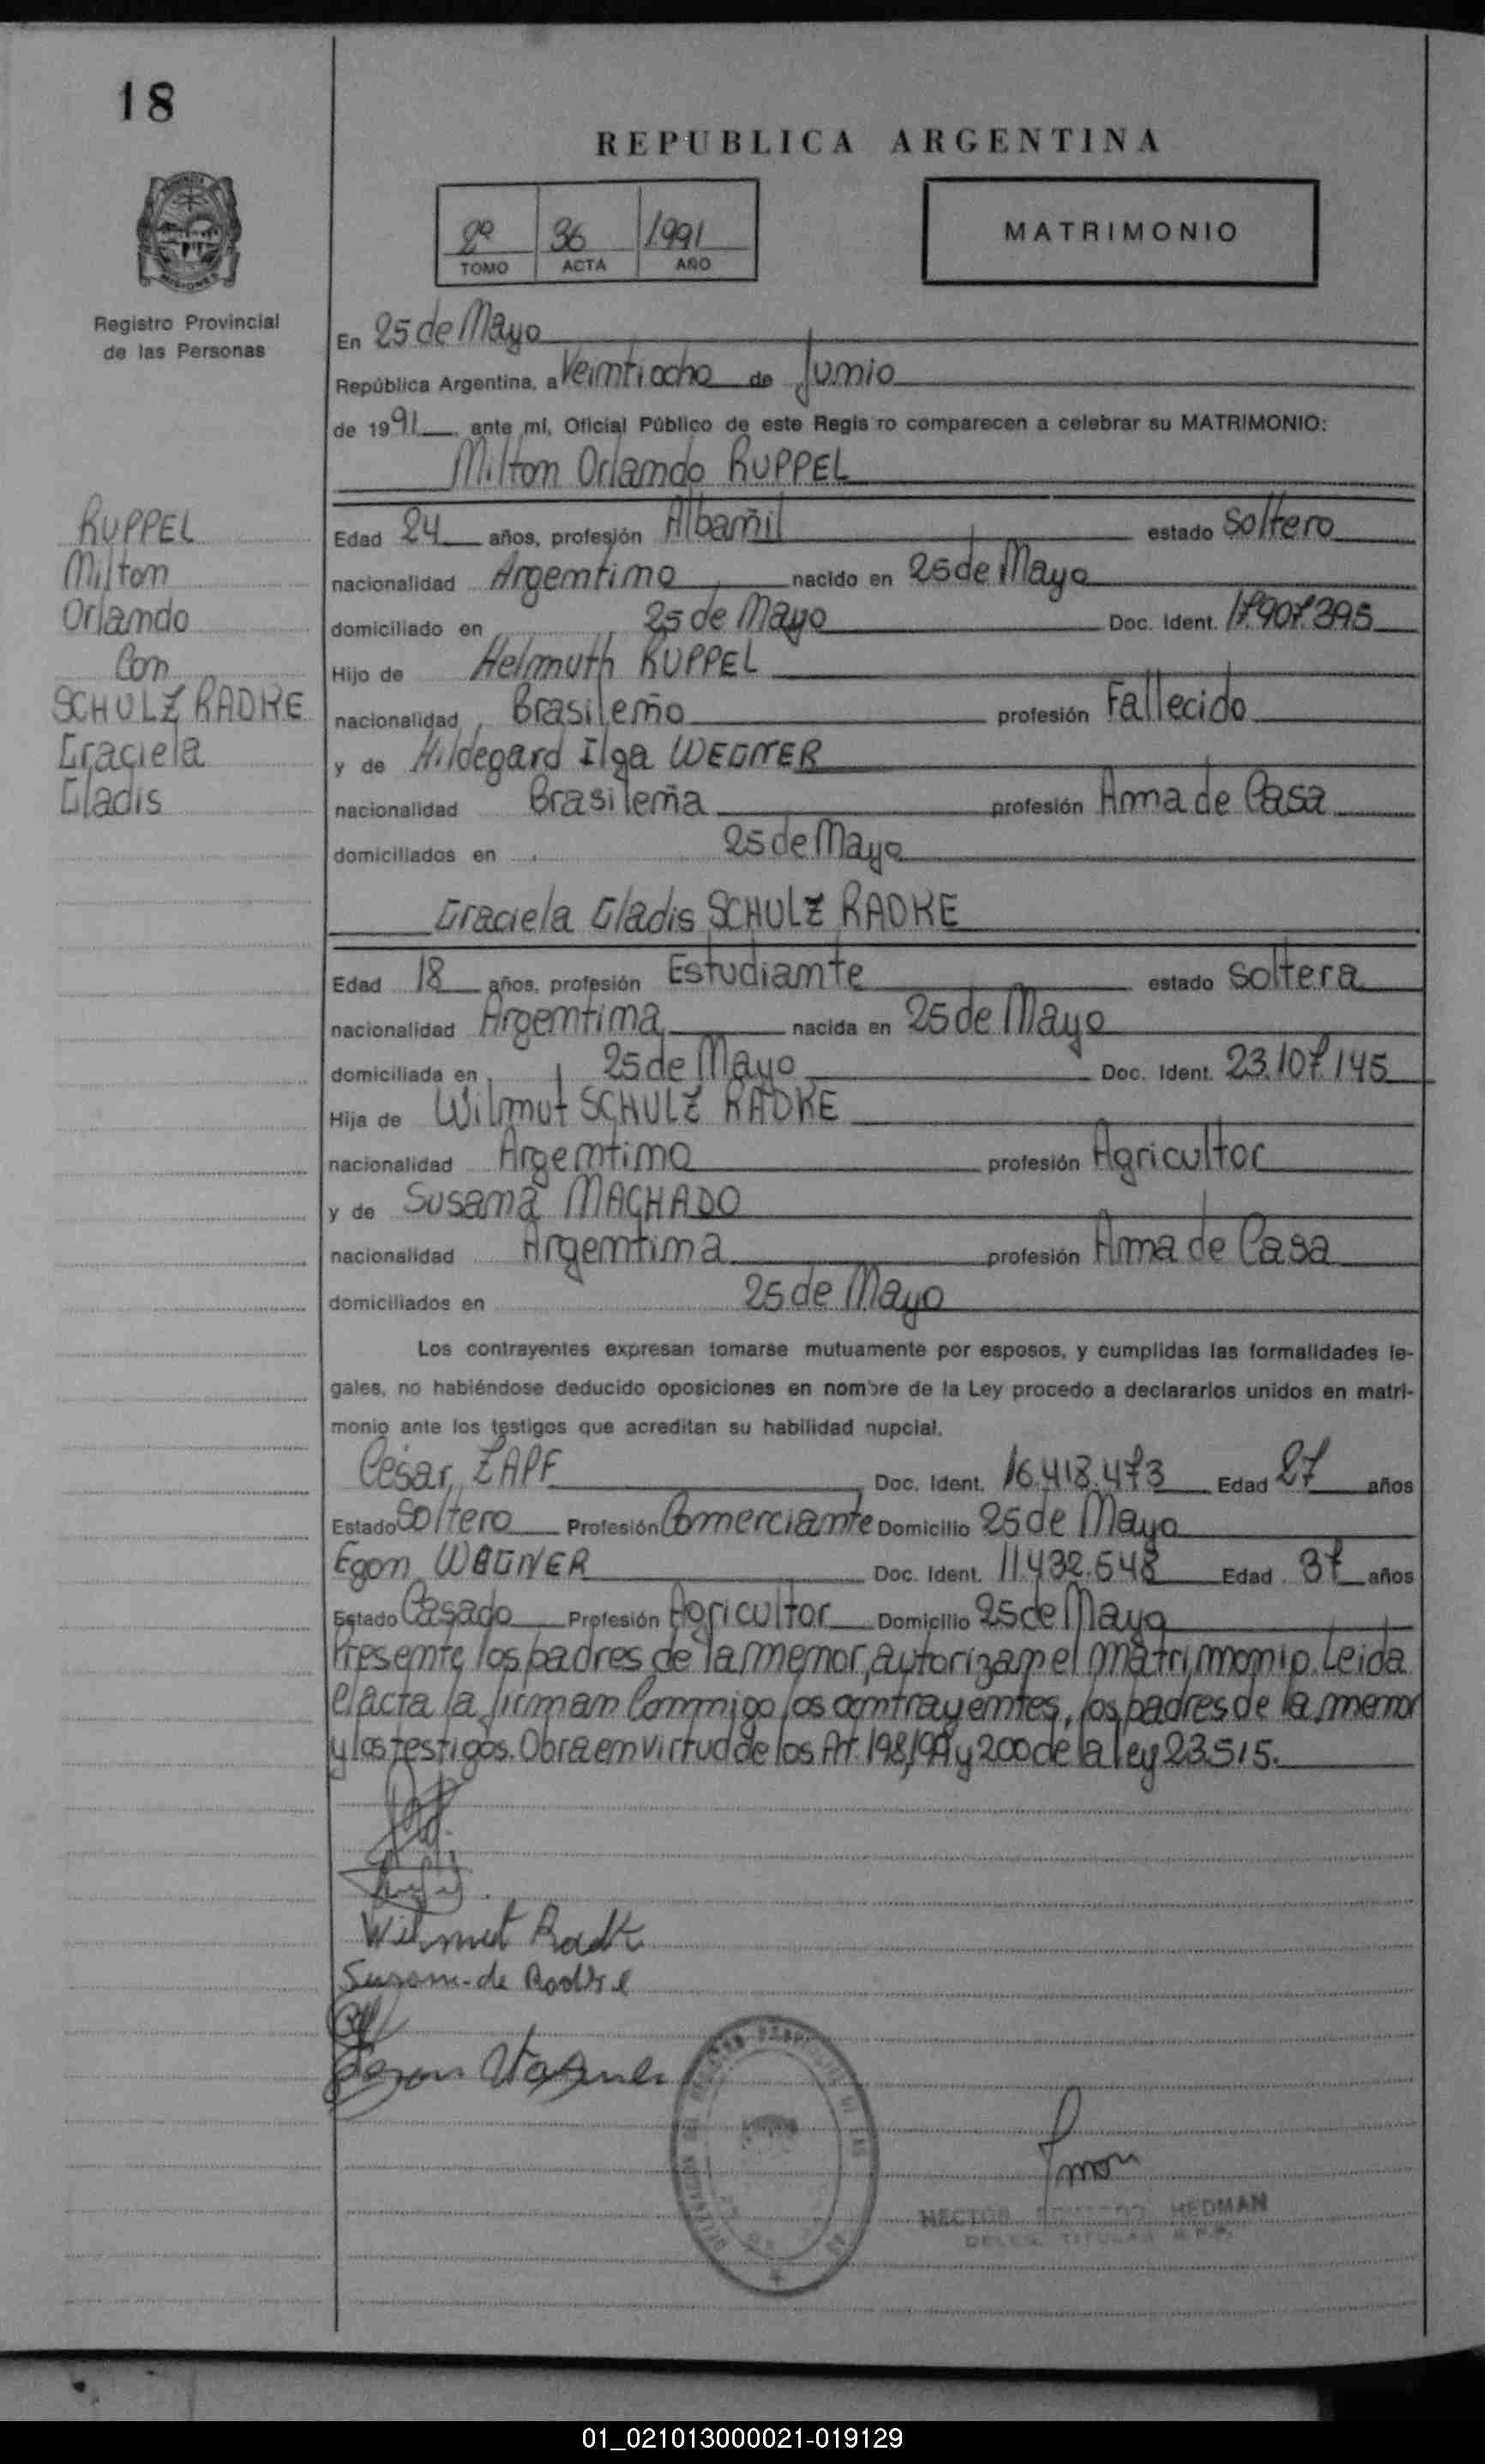 18
REPUBLICA ARGENTINA
2º 36 1991
TOMO ACTA AÑO
MATRIMONIO
MISIONES
Registro Provincial
de las Personas
En 25 de Mayo
República Argentina, a Veintiocho de Junio
de 1991 ante mí, Oficial Público de este Regis ro comparecen a celebrar su MATRIMONIO:
Milton Orlando RUPPEL
RUPPEL
Milton
Orlando
Con
SCHULZ RADKE
Graciela
Gladis
Edad 24 años, profesión Albañil estado Soltero
nacionalidad Argentino nacido en 25 de Mayo
domiciliado en 25 de Mayo Doc. Ident. 17.907.395
Hijo de Helmuth RUPPEL
nacionalidad Brasileño profesión Fallecido
y de Hildegard Ilga WEGNER
nacionalidad Brasileña profesión Ama de Casa
domiciliados en 25 de Mayo
Graciela Gladis SCHULZ RADKE
Edad 18 años, profesión Estudiante estado Soltera
nacionalidad Argentina nacida en 25 de Mayo
domiciliada en 25 de Mayo Doc. Ident. 23.107.145
Hija de Wilmut SCHULZ RADKE
nacionalidad Argentino profesión Agricultor
y de Susana MACHADO
nacionalidad Argentina profesión Ama de Casa
domiciliados en 25 de Mayo
Los contrayentes expresan tomarse mutuamente por esposos, y cumplidas las formalidades le-
gales, no habiéndose deducido oposiciones en nombre de la Ley procedo a declararlos unidos en matri-
monio ante los testigos que acreditan su habilidad nupcial.
César ZAPF Doc. Ident. 16.418.473 Edad 27 años
Estado Soltero Profesión Comerciante Domicilio 25 de Mayo
Egon WAGNER Doc. Ident. 11.432.548 Edad 37 años
Estado Casado Profesión Agricultor Domicilio 25 de Mayo
Presente los padres de la menor, autorizan el matrimonio. Leida
el acta la firman Conmigo los contrayentes, los padres de la menor
y los testigos. Obra en virtud de los Art. 198,199 y 200 de la ley 23.515.
Wilmut Radk
Susana de Radke
Egon Wagner
HECTOR HEDMAN
TITULAR
01_021013000021-019129